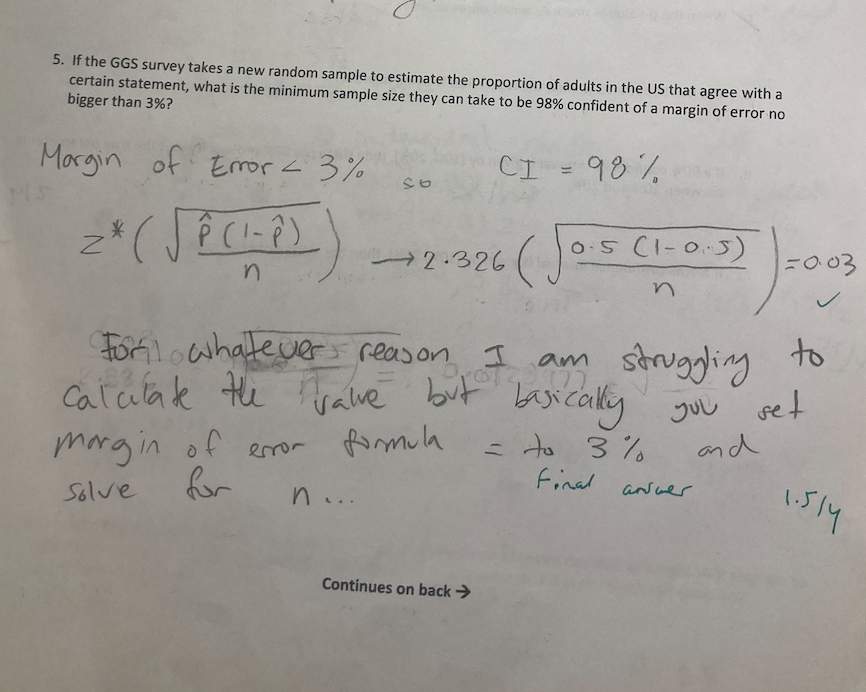 5. If the GGS survey takes a new random sample to estimate the proportion of adults in the US that agree with a
certain statement, what is the minimum sample size they can take to be 98% confident of a margin of error no
bigger than 3%?
Margin of Error < 3% so CI = 98%
z*(√(p̂(1-p̂)/n)) → 2.326(√(0.5(1-0.5)/n)) = 0.03 ✓
For whatever reason I am struggling to
calculate the value but basically you set
margin of error formula = to 3% and
solve for n...
Final answer
1.5/4
Continues on back →